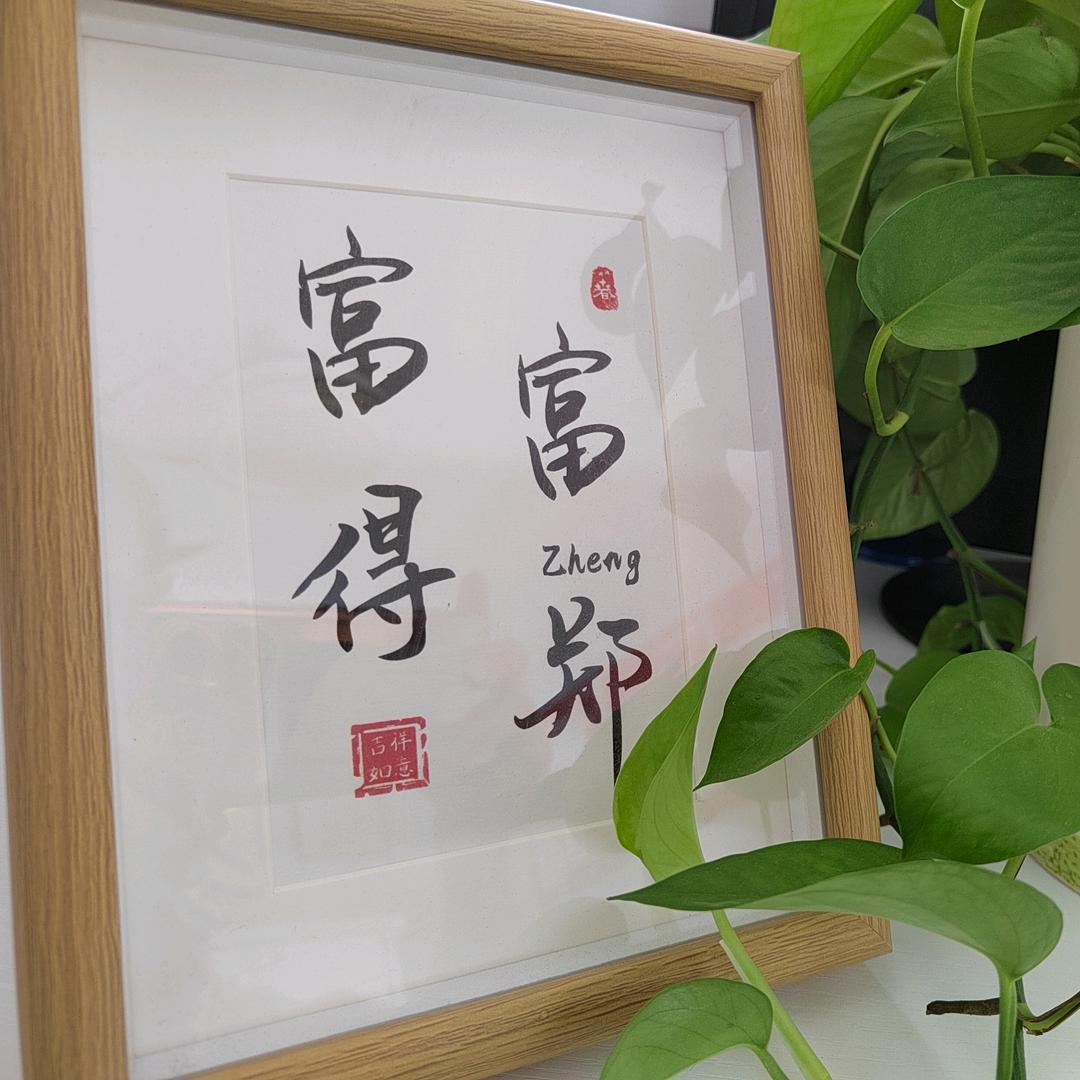 富富
Zheng
得郑
吉祥
如意